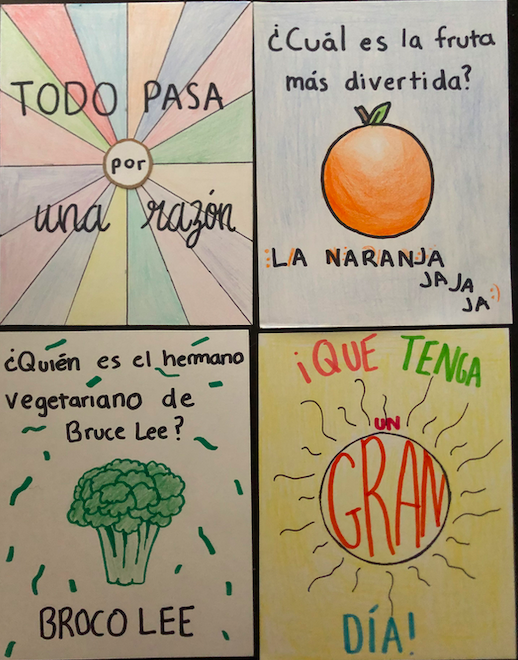 TODO PASA
por
una razón
¿Cuál es la fruta
más divertida?
LA NARANJA
JA JA
JA
¿Quién es el hermano
vegetariano de
Bruce Lee?
BROCO LEE
¡QUE TENGA
UN
GRAN
DÍA!